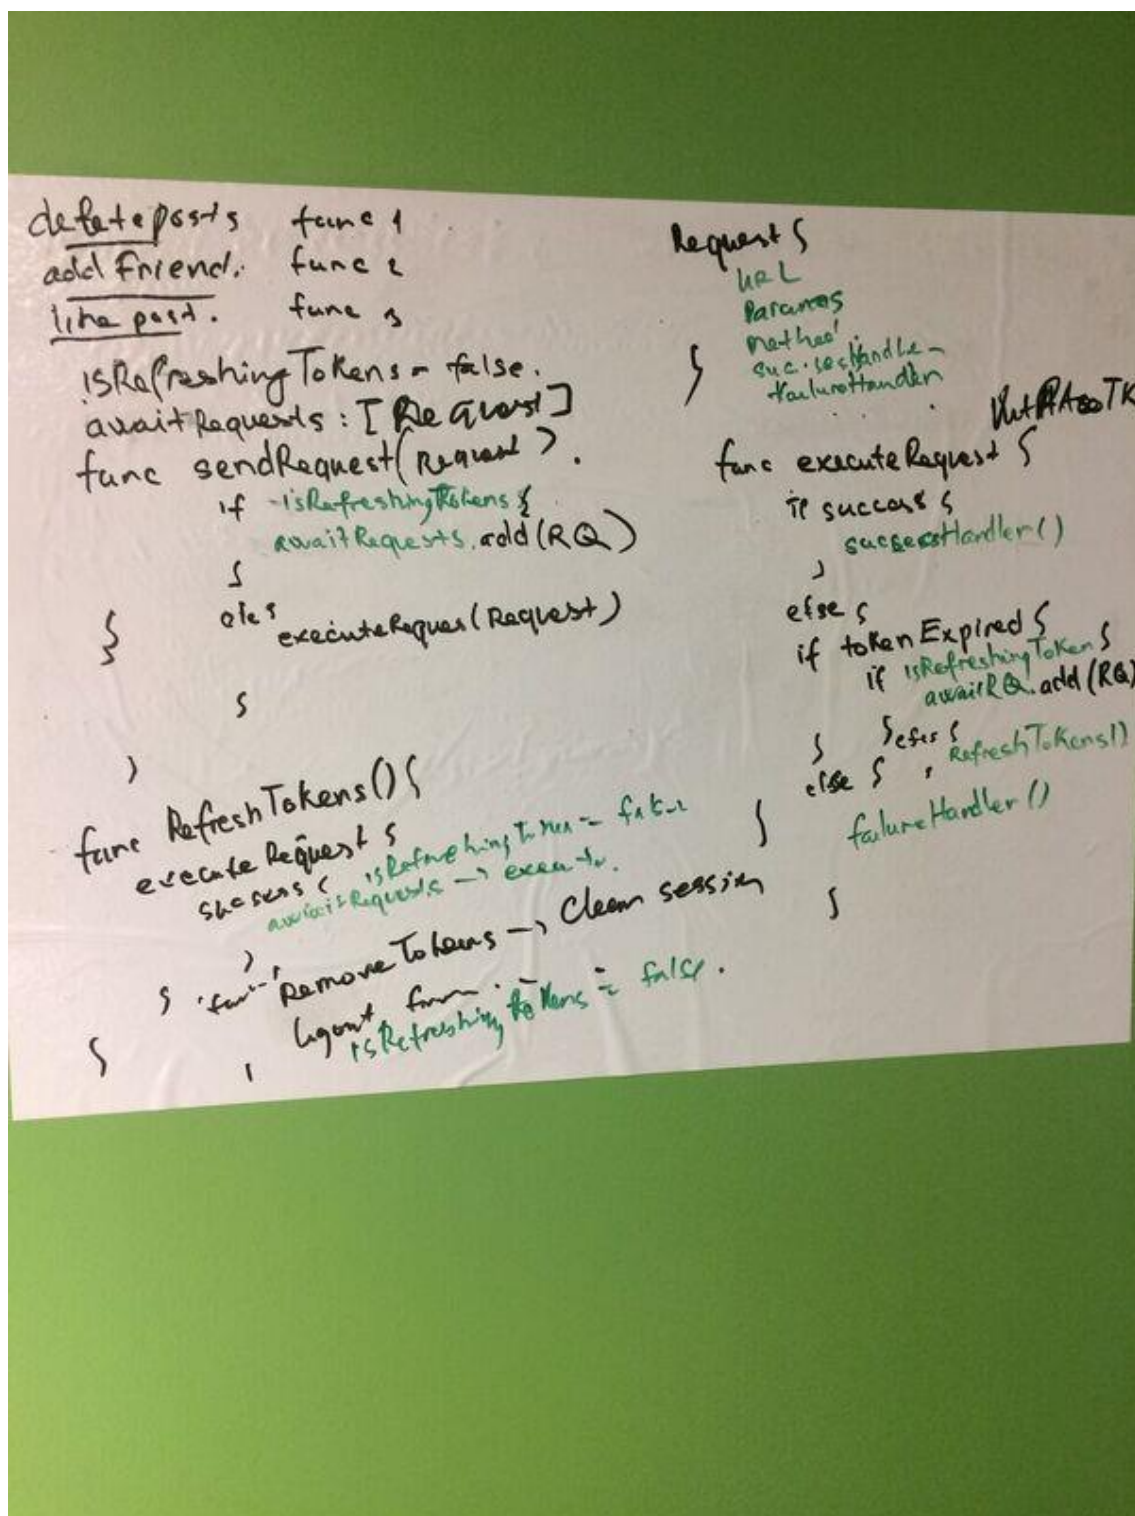 delete posts func 1
add Friend. func 2
like post. func 3
isRefreshingTokens = false.
await Requests : [Request]
func sendRequest(Request).
if isRefreshingTokens {
awaitRequests.add(RQ)
}
else {
executeReques(Request)
}
}
func RefreshTokens() {
execute Request {
isRefreshingToken = false
awaitRequests -> execute.
}
RemoveTokens -> Clean session
logout
isRefreshing Tokens = false.
}
Request {
URL
Params
method
successHandle
failureHandler
}
func executeRequest {
if success {
successHandler()
}
else {
if tokenExpired {
if isRefreshingToken {
awaitRQ.add(RQ)
} else {
RefreshTokens()
}
else {
failureHandler()
}
}